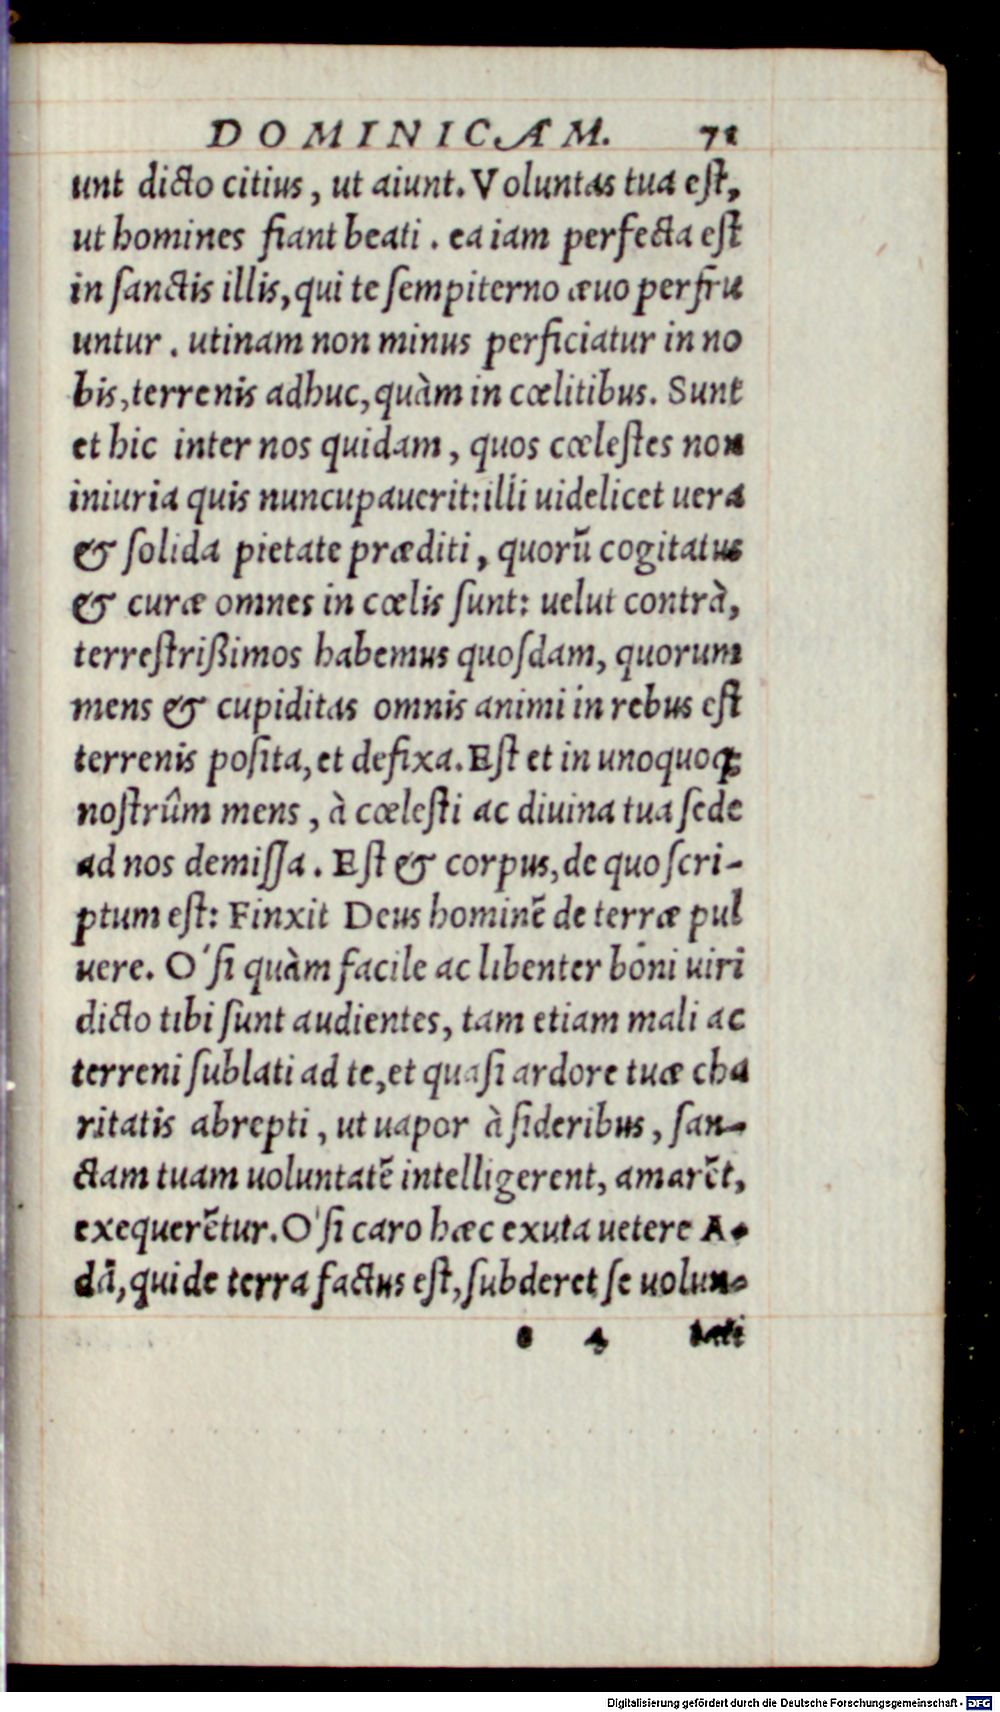 DOMINICAM. 71
unt dicto citius, ut aiunt. Voluntas tua eſt,
ut homines fiant beati. ea iam perfecta eſt
in ſanctis illis, qui te ſempiterno æuo perfru
untur. utinam non minus perficiatur in no
bis, terrenis adhuc, quàm in cœlitibus. Sunt
et hic inter nos quidam, quos cœleſtes non
iniuria quis nuncupauerit: illi uidelicet uera
& ſolida pietate præditi, quorū cogitatus
& curæ omnes in cœlis ſunt: uelut contrà,
terreſtrißimos habemus quoſdam, quorum
mens & cupiditas omnis animi in rebus eſt
terrenis poſita, et defixa. Eſt et in unoquoq;
noſtrûm mens, à cœleſti ac diuina tua ſede
ad nos demiſſa. Eſt & corpus, de quo ſcri-
ptum eſt: Finxit Deus hominē de terræ pul
uere. O' ſi quàm facile ac libenter boni uiri
dicto tibi ſunt audientes, tam etiam mali ac
terreni ſublati ad te, et quaſi ardore tuæ cha
ritatis abrepti, ut uapor à ſideribus, ſan-
ctam tuam uoluntatē intelligerent, amarēt,
exequerētur. O' ſi caro hæc exuta uetere A-
dā, qui de terra factus eſt, ſubderet ſe uolun-
4 tati
Digitalisierung gefördert durch die Deutsche Forschungsgemeinschaft - DFG